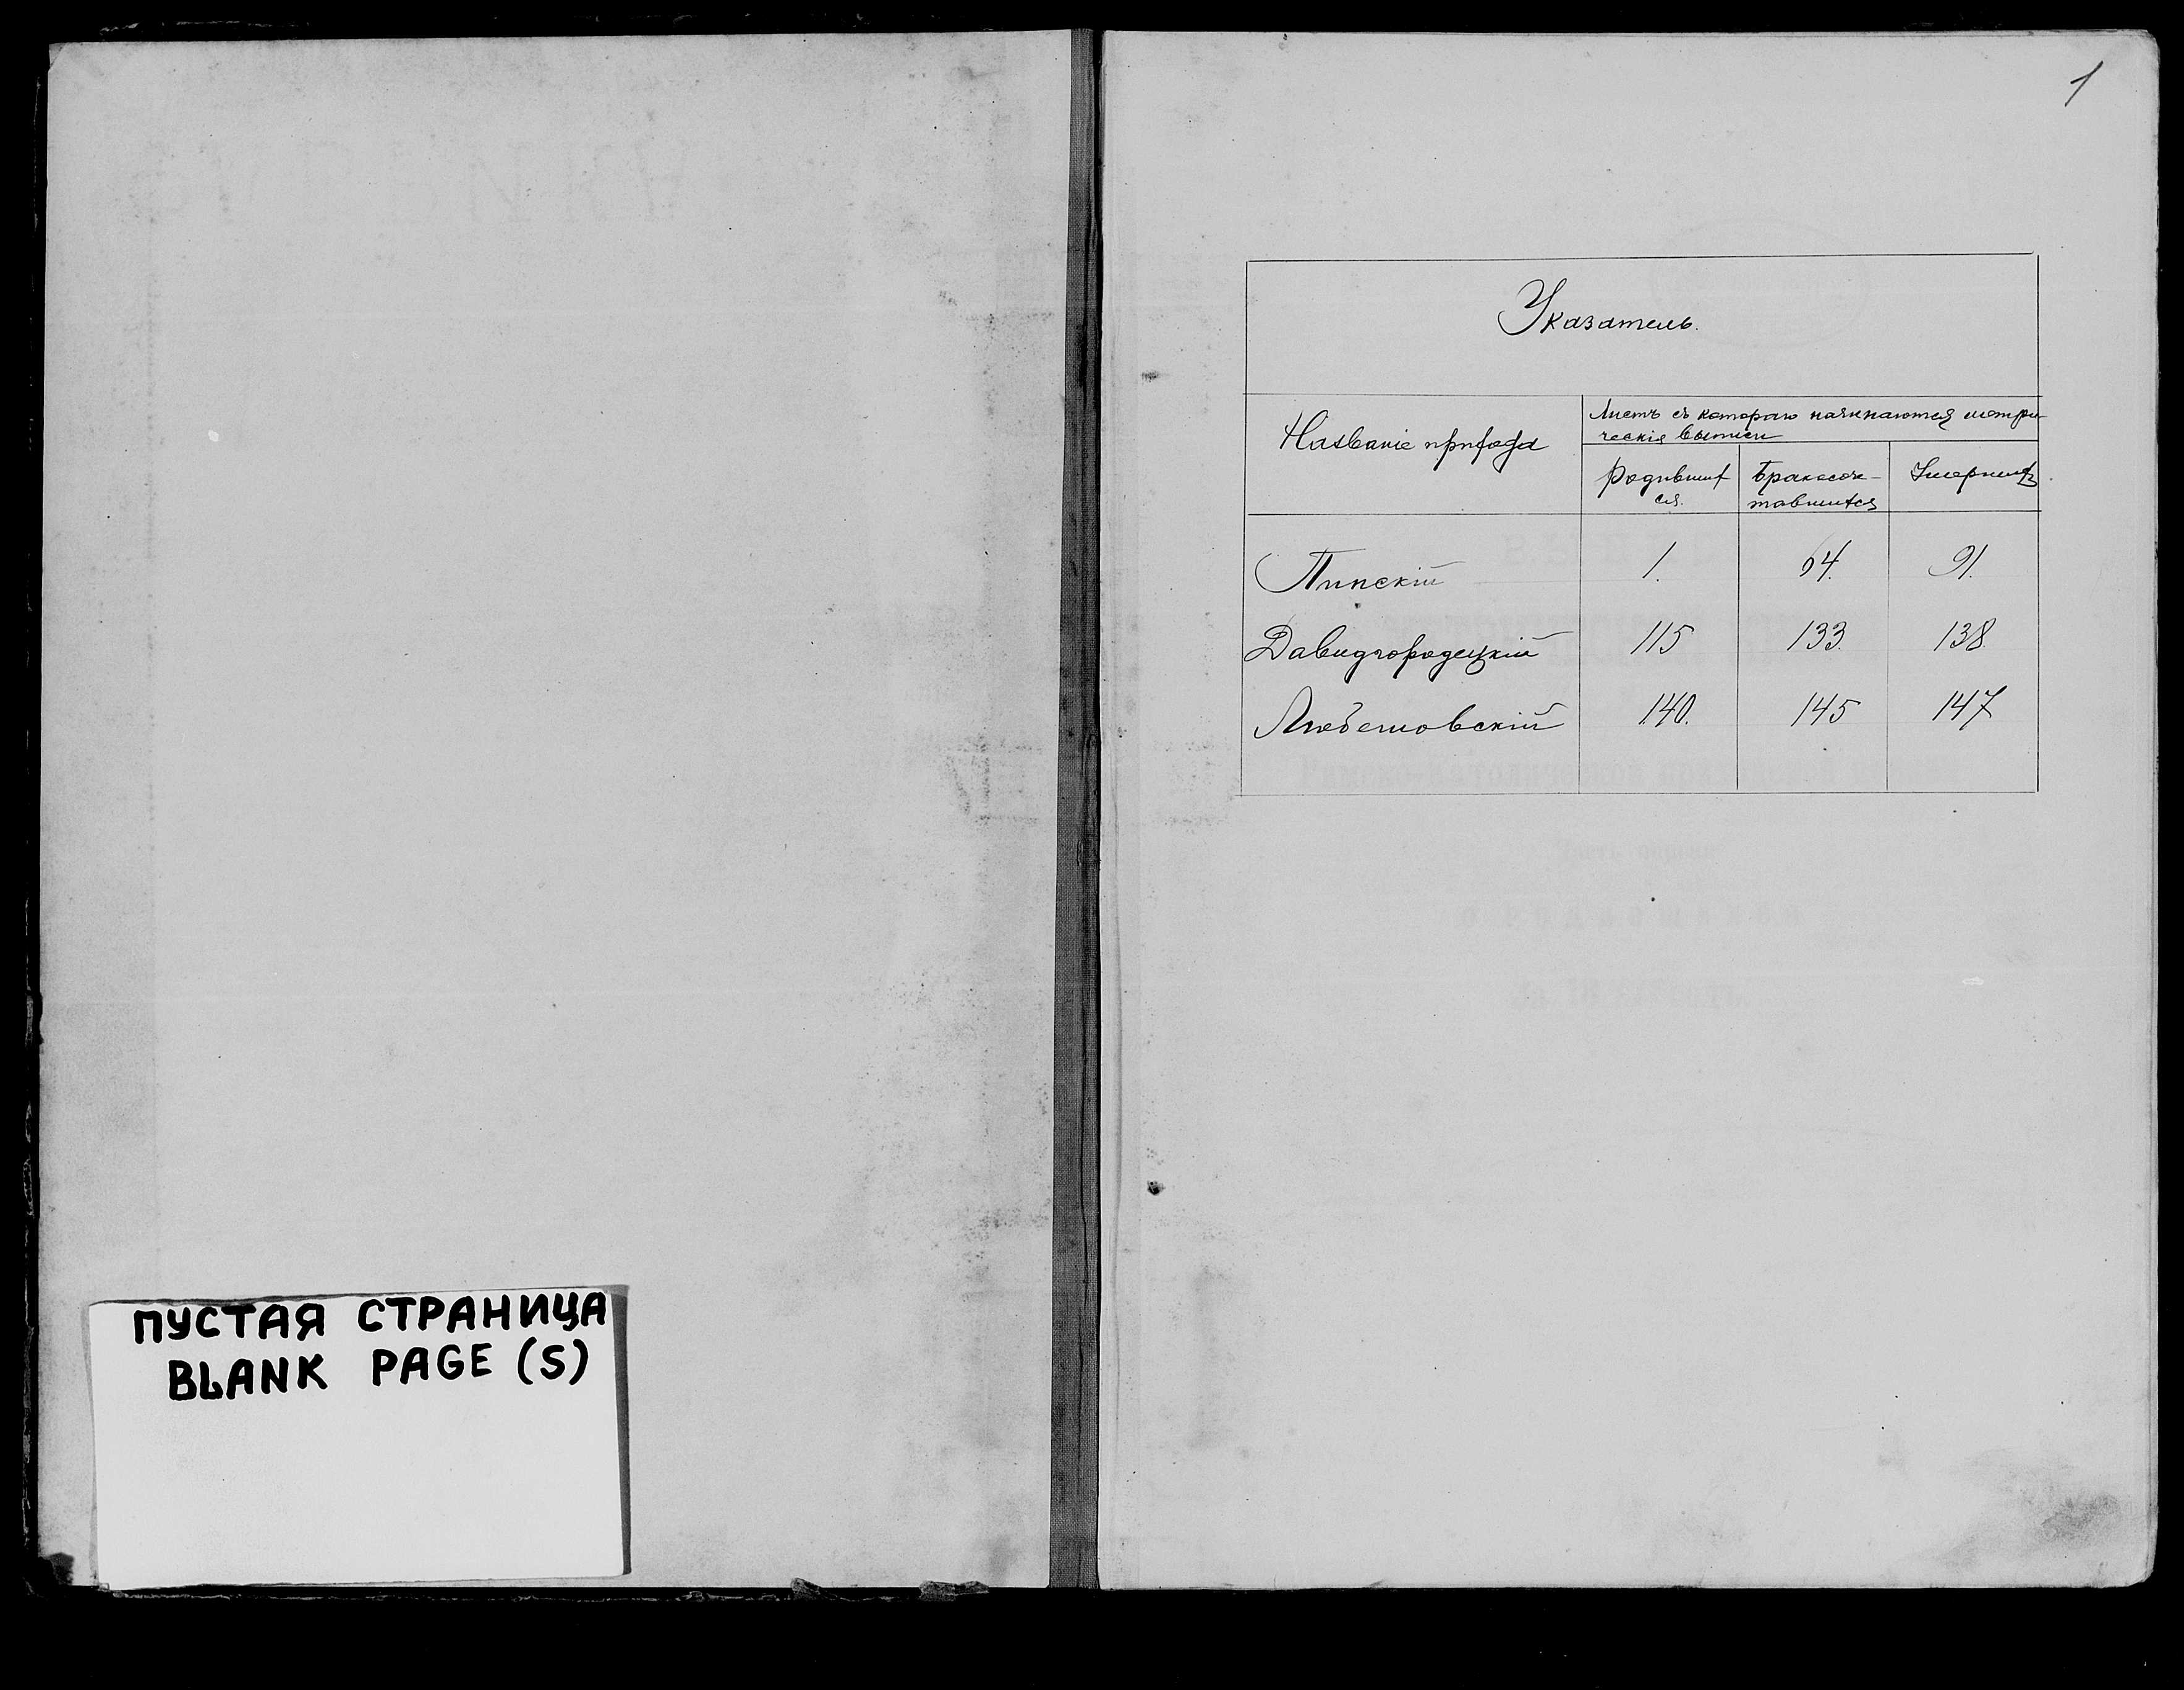 ПУСТАЯ СТРАНИЦА
BLANK PAGE (S)
1
Указатель.
Названіе прихода
Листъ съ котораго начинаются метри-
ческія выписи
Родивших
ся.
Бракосоче-
тавшихся
Умерших
Пинскій 1. 64. 91.
Давидгородецкій 115 133. 138.
Любешовскій 140. 145 147